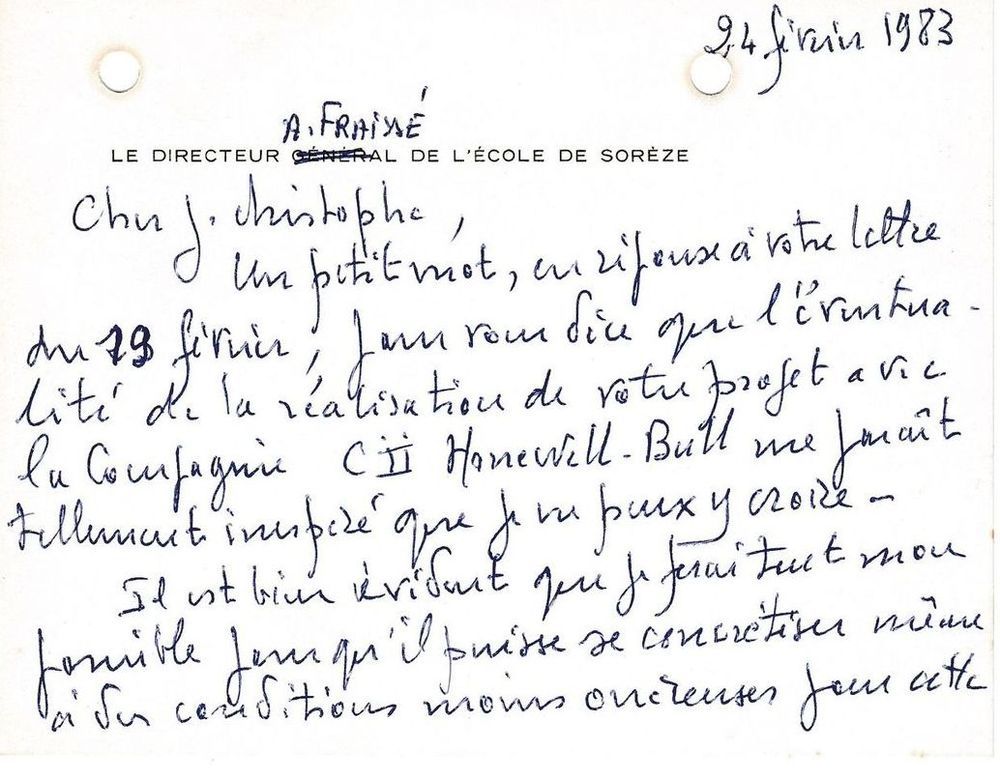 24 février 1983
A. FRAISSÉ
LE DIRECTEUR GÉNÉRAL DE L'ÉCOLE DE SORÈZE
Cher J. Christophe,
Un petit mot, en réponse à votre lettre
du 19 février, pour vous dire que l'éventua-
lité de la réalisation de votre projet avec
la Compagnie CII Honewell-Bull me paraît
tellement inespéré que je ne peux y croire -
Il est bien évident que je ferai tout mon
possible pour qu'il puisse se concrétiser même
à des conditions moins onéreuses pour cette